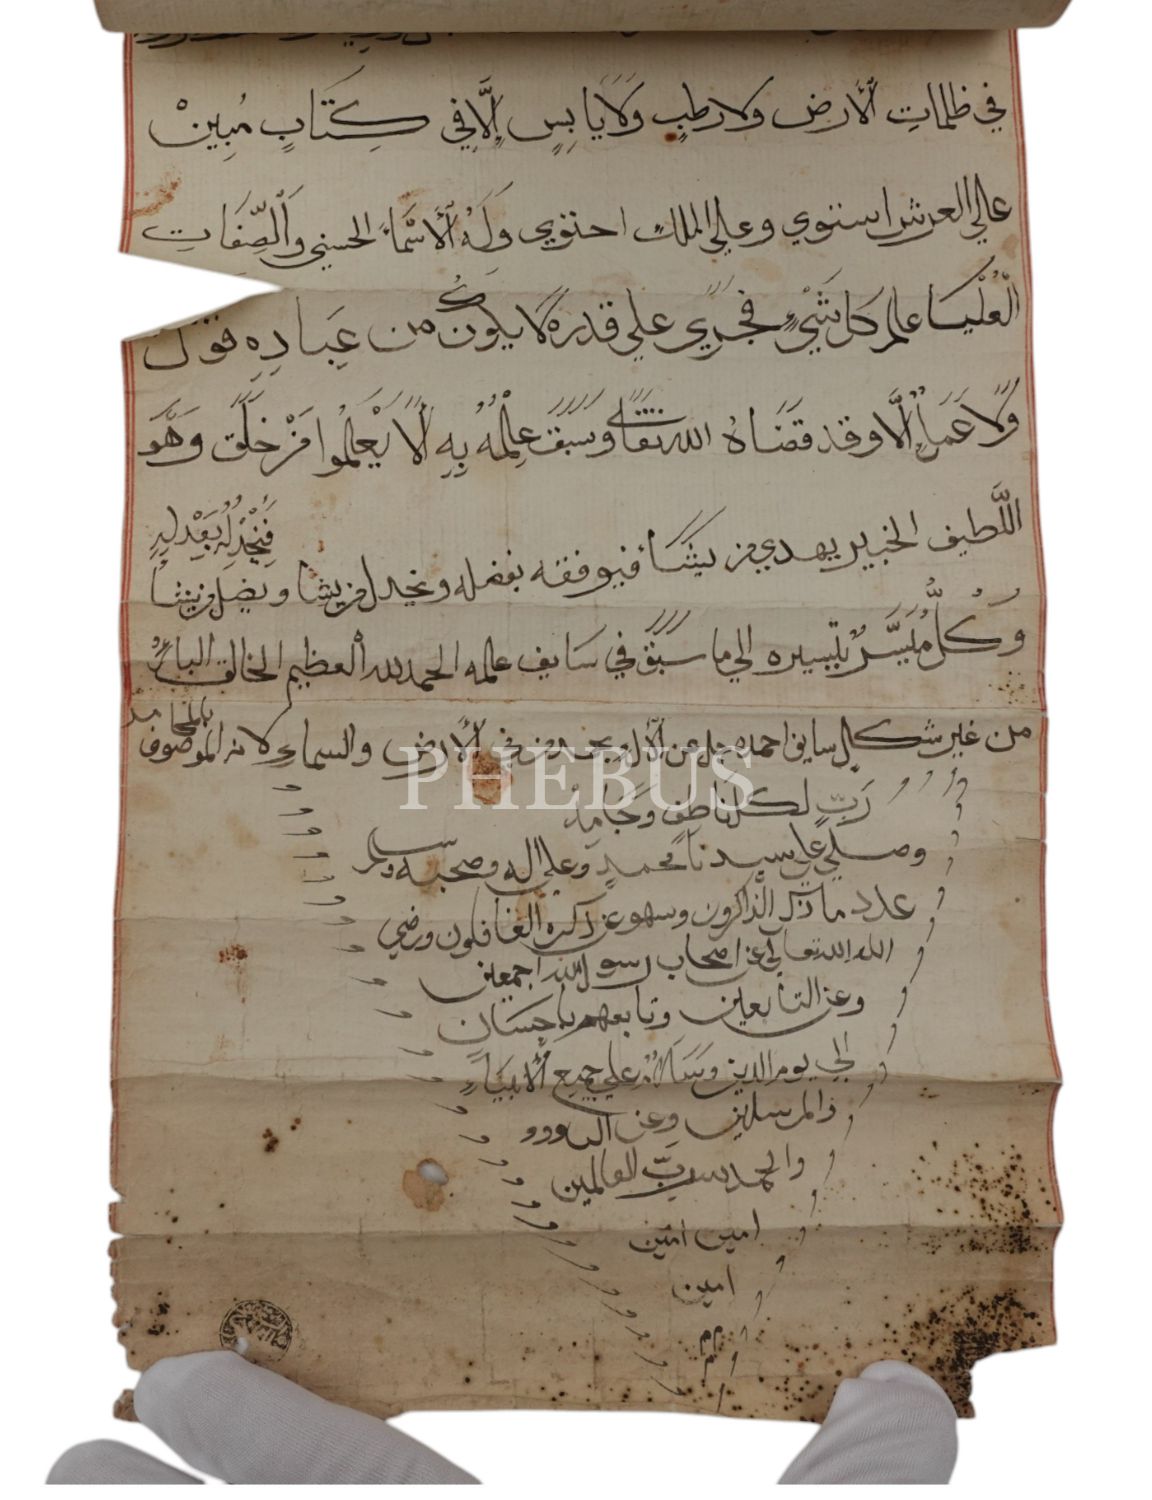 في ظلمات الأرض ولا رطبٍ ولا يابسٍ إلّا في كِتَابٍ مُبِينْ
علي العرش استوي وعلي الملك احتوي وَلَهُ الأسْمَاءُ الحسني والصِّفَاتِ
الْعُلْيَا علم كل شَيْءٍ فجري علي قدره لا يكون من عِبادِهِ قول
ولا عَمَل إلّا وقد قضاهُ الله تعالي وسبق عِلْمُهُ بِهِ ألا يَعْلَمُ من خلق وَهُو
اللَّطيف الخبير يهدي من يشاء فيوفقه بفضله ويخذل من يشا ويضل من يشا
فَيَخْذِلُه بِعَدْلِهِ
وكُلٌّ مُيَسَّرٌ بتيسيره الي ما سبق في سابق علمه الحمد لله العظيم الخالق البارُ
من غير شكل سابق احمده جل عن في الأرض والسماء لانه الموصوف
بالمحامد
رَبّ لكل ناطق وجَامِد
وصلي علي سيدنا محمدٍ وعلي اله وصحبه وسلم
عدد ما ذكر الذاكرون وسهو عن ذكره الغافلون ورضي
الله الله تعالي عن اصحاب رسول الله اجمعين
وعن التابعين وتابعهم بإحسَانٍ
إلي يوم الدين وسَلَامٌ علي جميع الأنبياءِ
والمرسلين وعن
والحمد لله ربّ العالمين
امين امين
امين
م م
م
PHEBUS